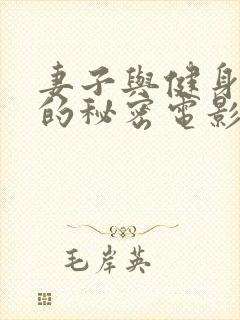 妻子與健身
的秘密電影
毛岸英